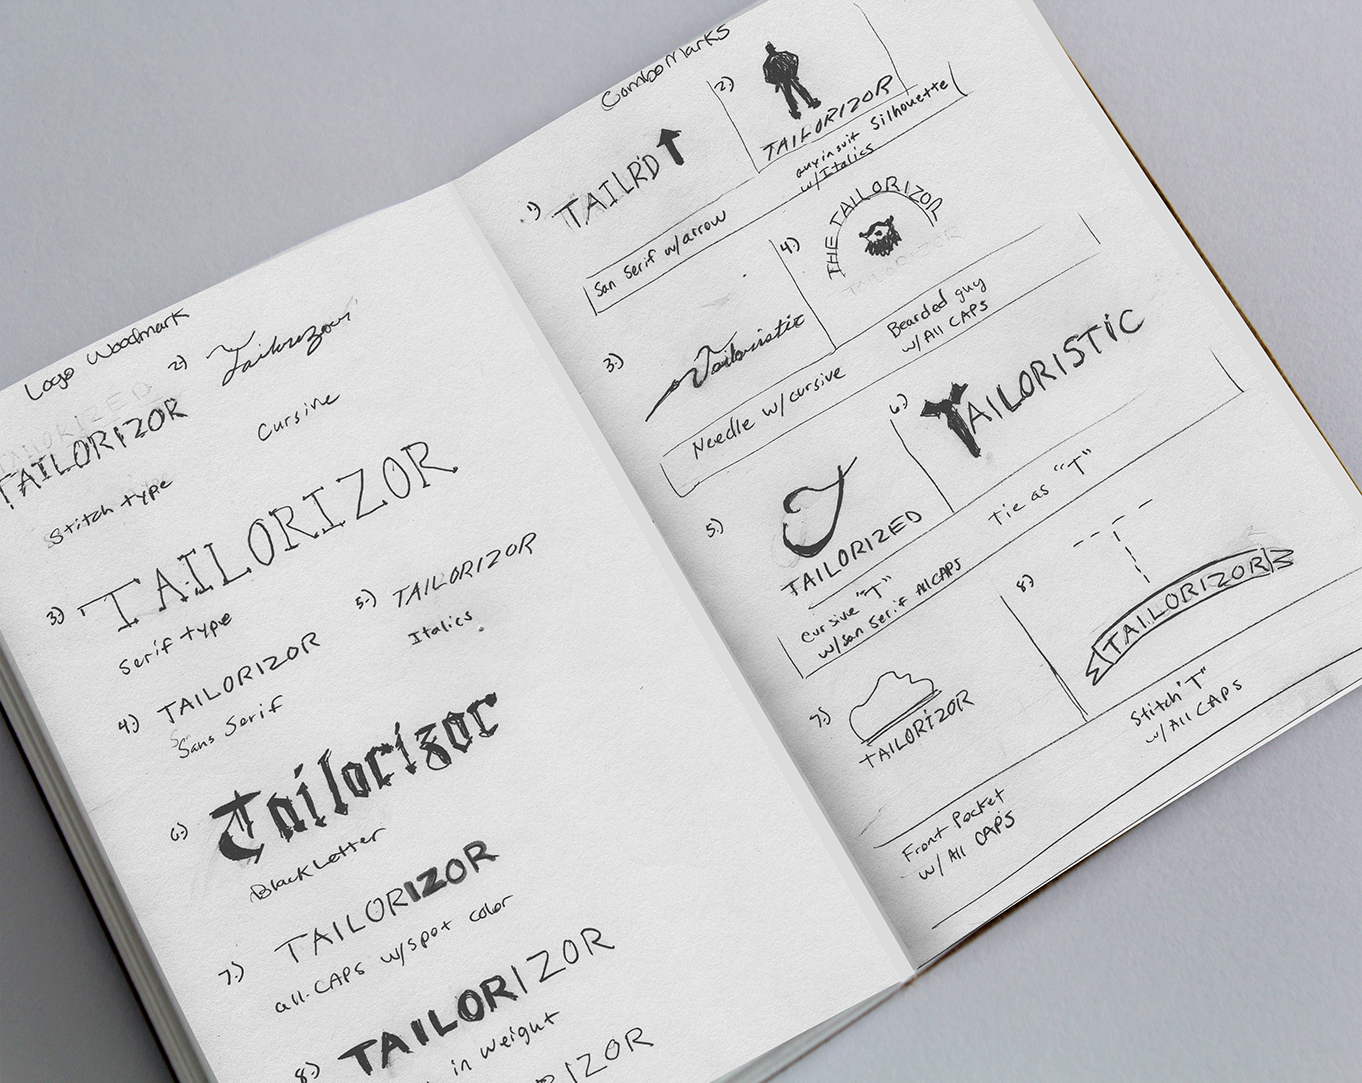 Logo Woodmark
TAILORIZED
TAILORIZOR
Stitch type
2.)
Tailorizor
Cursive
3.) TAILORIZOR
Serif type
4.) TAILORIZOR
Sans Serif
5.) TAILORIZOR
Italics
6.) Tailorizor
Black Letter
7.) TAILORIZOR
all-CAPS w/spot color
8.) TAILORIZOR
in weight
IZOR
Combo Marks
1.) TAILR'D
San Serif w/arrow
2.)
TAILORIZOR
guy in suit Silhouette
w/Italics
3.) Tailoristic
Needle w/cursive
4.) THE TAILORIZOR
TAILORIZOR
Bearded guy
w/All CAPS
5.) T
TAILORIZED
Cursive "T"
w/san serif All CAPS
6.) TAILORISTIC
Tie as "T"
7.)
TAILORIZOR
Front Pocket
w/ All CAPS
8.) T
TAILORIZOR
Stitch "T"
w/ All CAPS